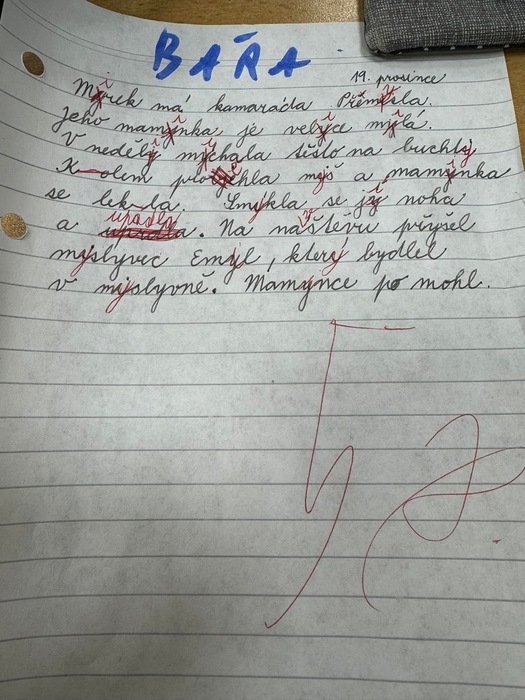 BÁŘA
19. prosince
Myrek má kamaráda Přemysla.
Jeho mamynka je velyce mylá.
V neděly mýchala těsto na buchty.
K olem myš a mamynka
se lek la. Smykla se jy noha
a upadla. Na naštěvu přyšel
myslyvec Emyl, který bydlel
v myslyvně. Mamynce po mohl.
5